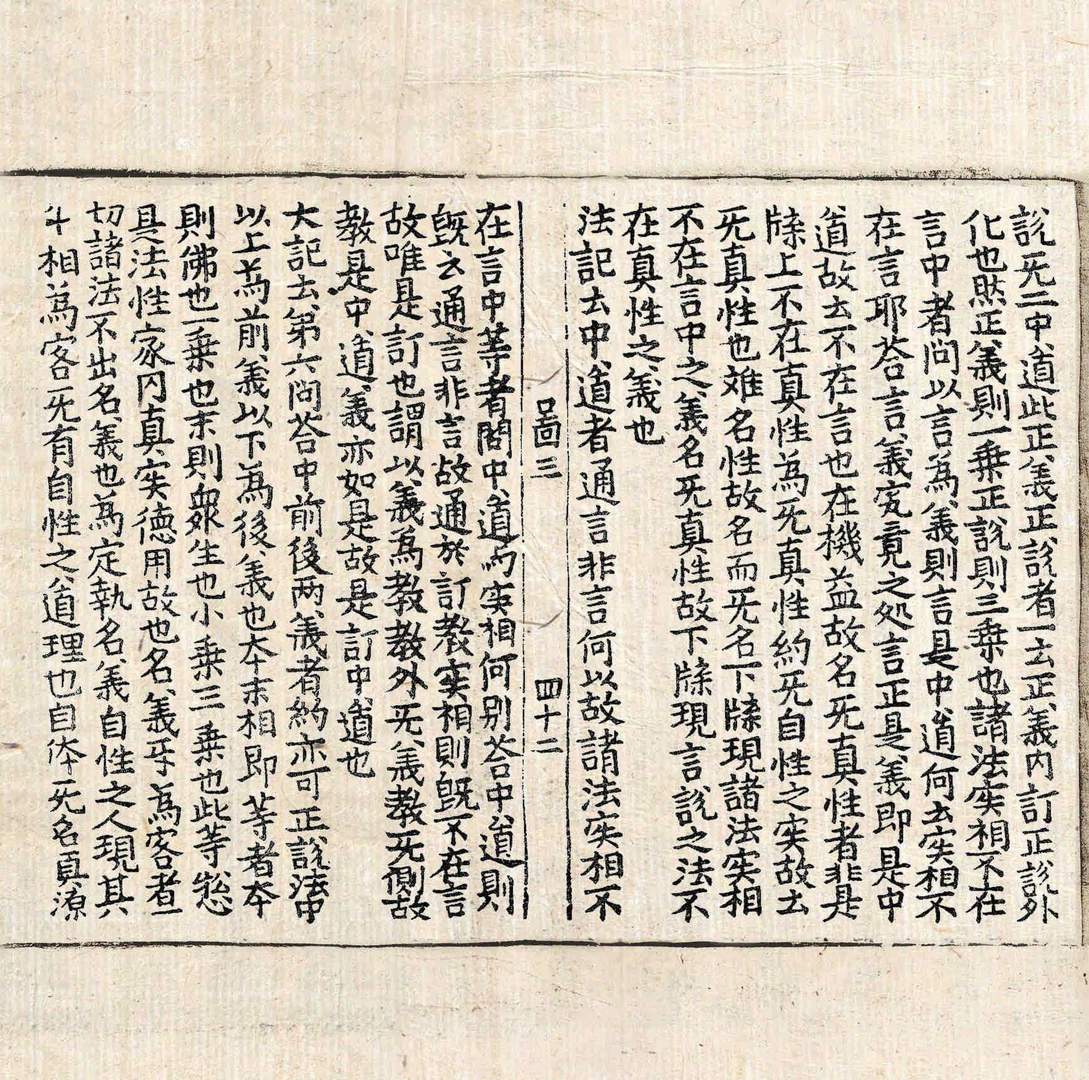 說无二中道此正義正說者一云正義內訂正說外
化也然正義則一乗正說則三乗也諸法実相不在
言中者問以言為義則言是中道何云実相不
在言耶荅言義究竟之処言正是義即是中
道故云不在言也在機益故名无真性者非是
牒上不在真性為无真性約无自性之実故云
无真性也難名性故名而无名下牒現諸法実相
不在言中之義名无真性故下牒現言說之法不
在真性之義也
法記云中道者通言非言何以故諸法実相不
啚三 四十二
在言中等者問中道与実相何別荅中道則
旣云通言非言故通於訂教実相則旣不在言
故唯是訂也謂以義為教教外无義教无側故
教是中道義亦如是故是訂中道也
大記云第六問荅中前後两義者約亦可正說法中
以上為前義以下為後義也夲末相即等者夲
則佛也一乗也末則衆生也小乗三乗也此等㧾
是法性家內真実德用故也名義牙為客者一
切諸法不出名義也為定執名義自性之人現其
斗相為客无有自性之道理也自体无名真源